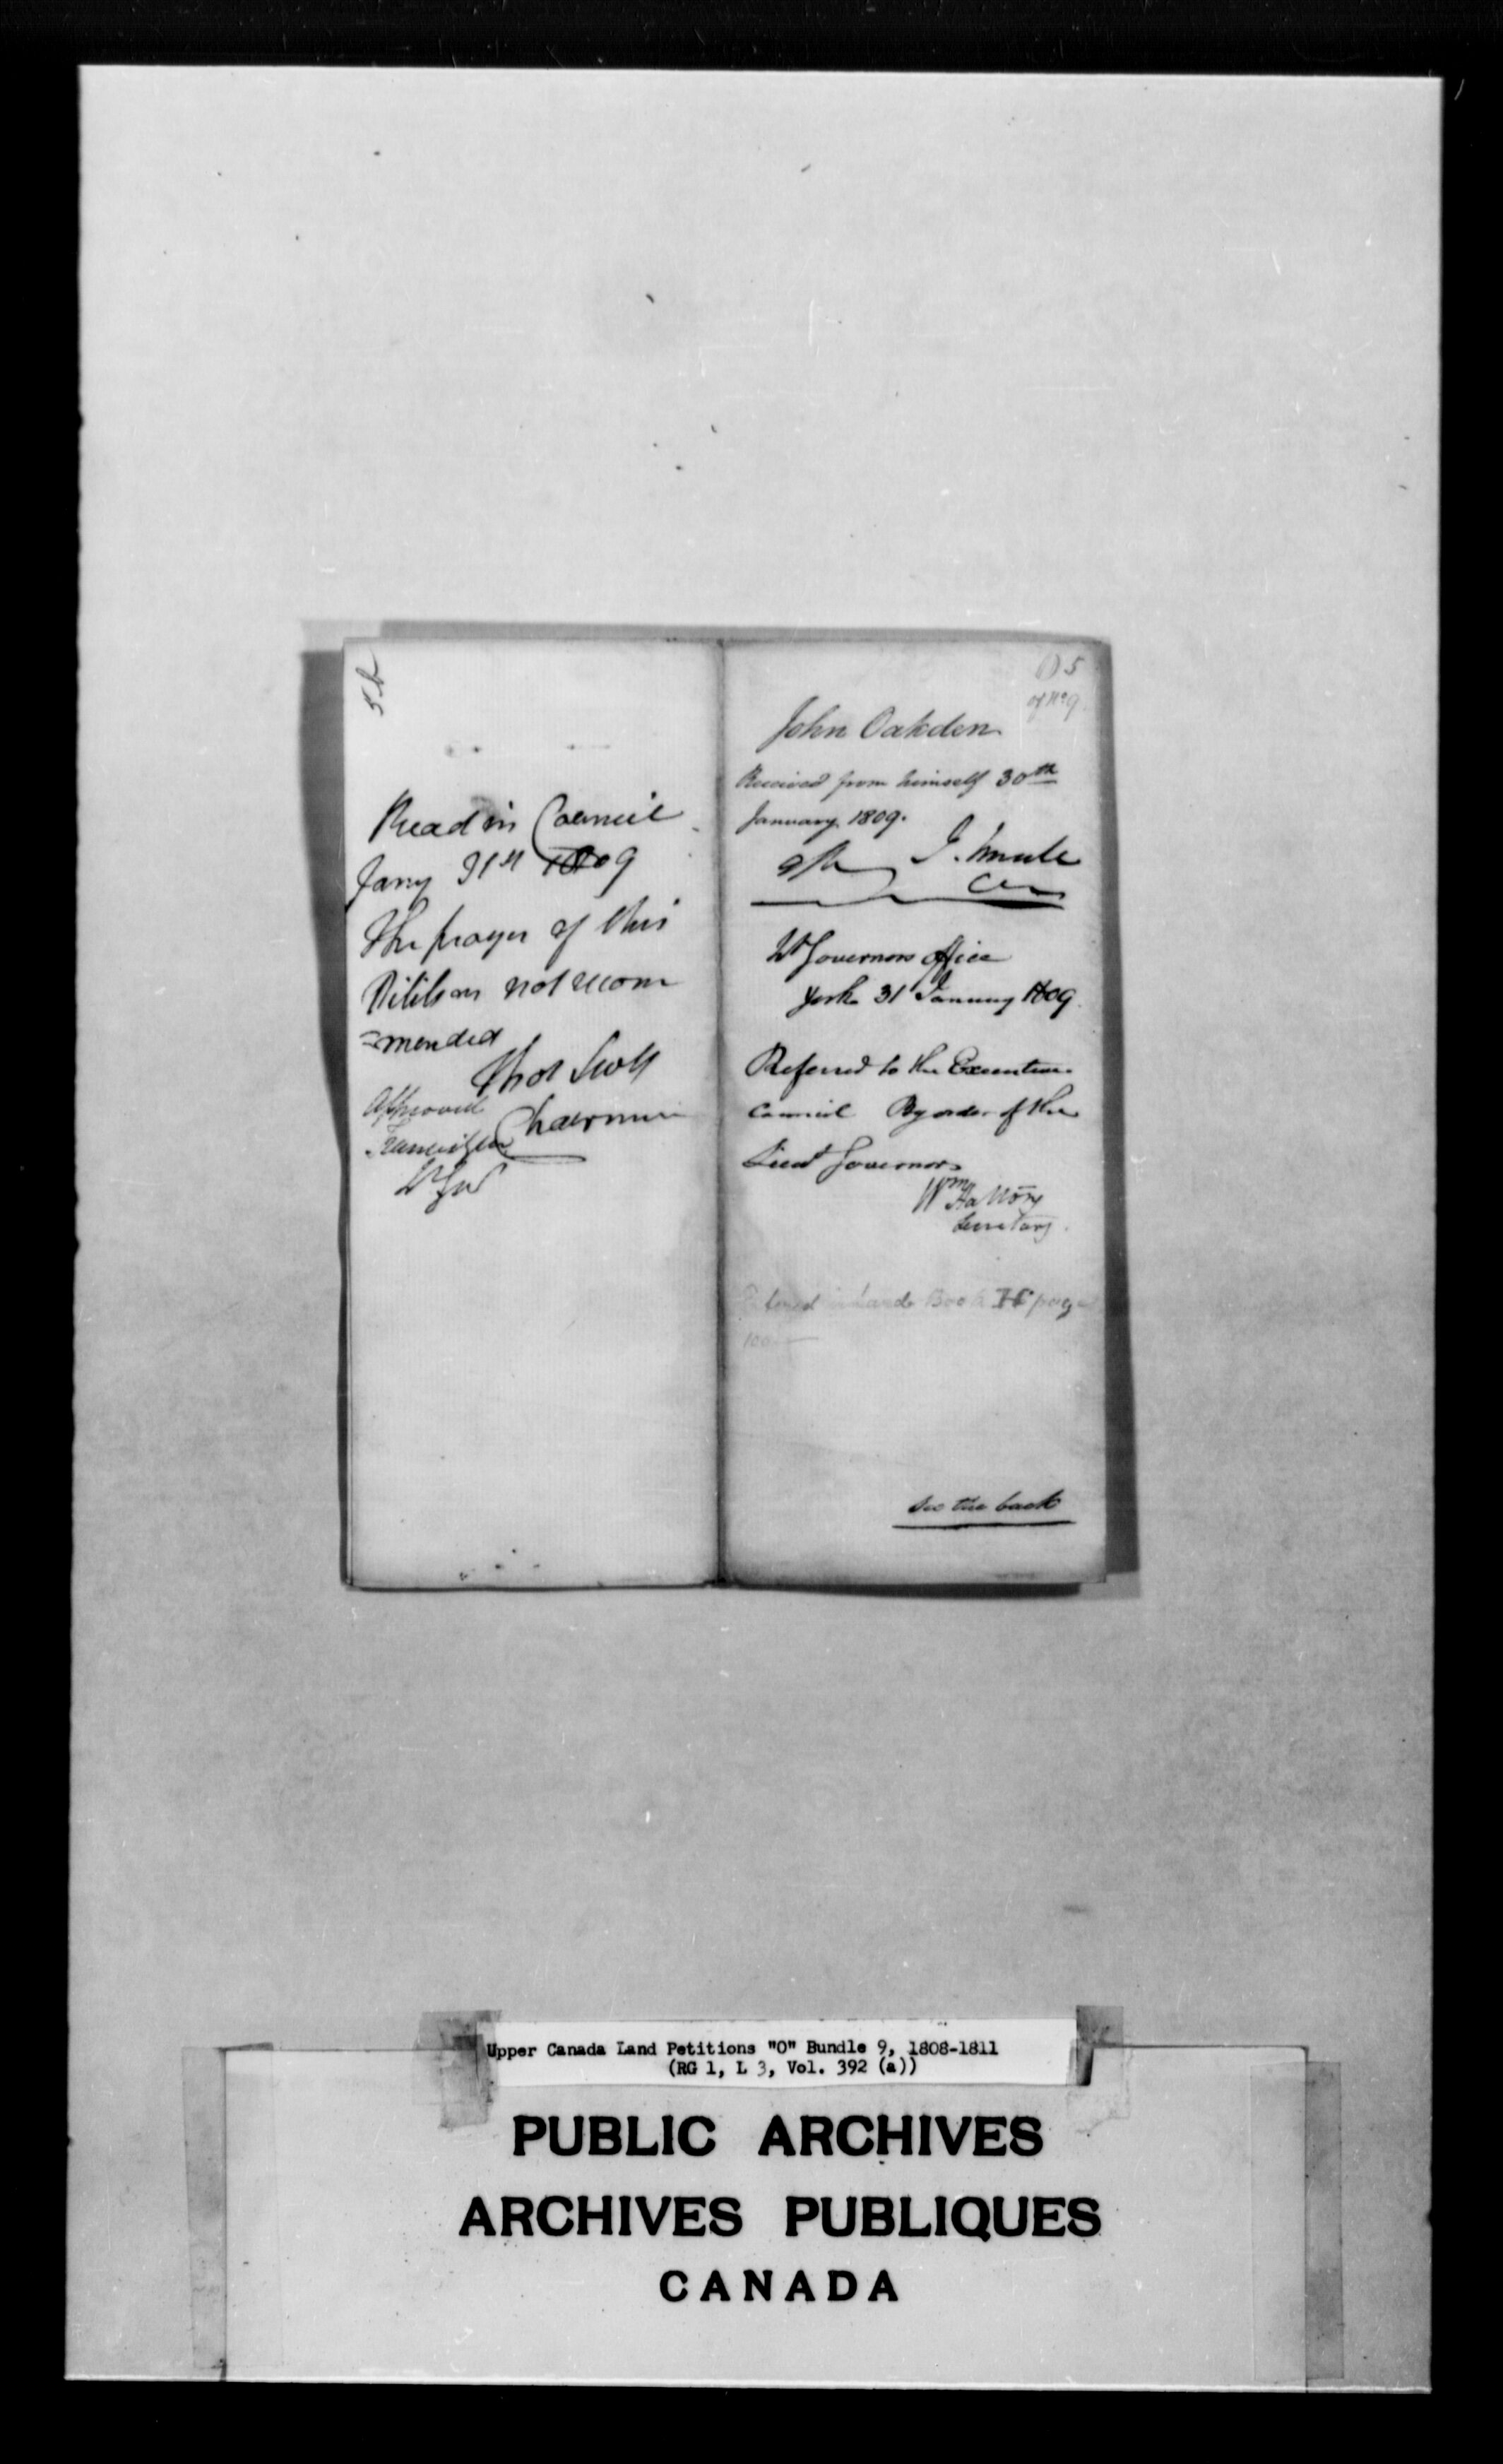 5b
Read in Council
Jany 31st 1809
The prayer of this
Petition not recom
=mended
Thos Scott
Chairman
Approved
Francis Gore
Lt Gov
O 5
of No 9
John Oakden
Received from himself 30th
January 1809.
J. Small
Lt Governors Office
York 31 January 1809
Referred to the Executive
Council By order of the
Lieut Governor
Wm Halton
Secretary.
Entered in Land Book page
see the back
Upper Canada Land Petitions "O" Bundle 9, 1808-1811
(RG 1, L 3, Vol. 392 (a))
PUBLIC ARCHIVES
ARCHIVES PUBLIQUES
CANADA